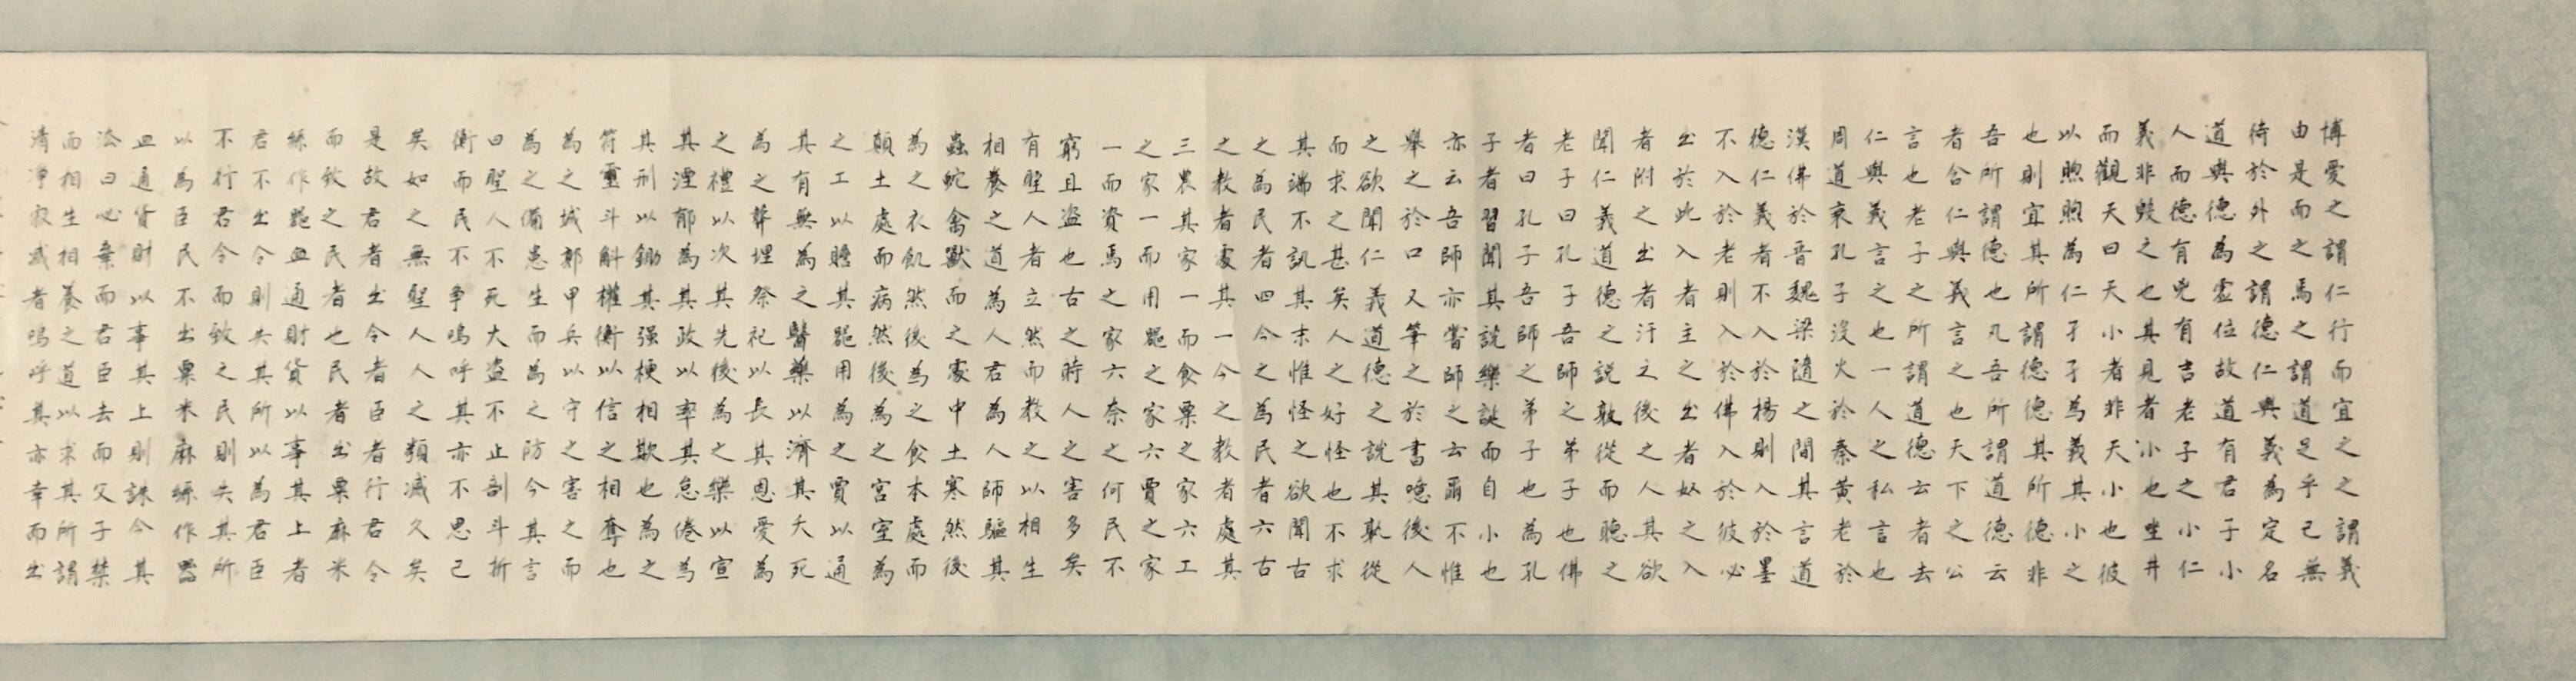 博愛之謂仁行而宜之之謂義
由是而之焉之謂道足乎己無
待於外之謂德仁與義為定名
道與德為虛位故道有君子小
人而德有兇有吉老子之小仁
義非毀之也其見者小也坐井
而觀天曰天小者非天小也彼
以煦煦為仁孑孑為義其小之
也則宜其所謂德德其所德非
吾所謂德也凡吾所謂道德云
者合仁與義言之也天下之公
言也老子之所謂道德云者去
仁與義言之也一人之私言也
周道衰孔子沒火於秦黃老於
漢佛於晉魏梁隨之間其言道
德仁義者不入於楊則入於墨
不入於老則入於佛入於彼必
出於此入者主之出者奴之入
者附之出者汙之後之人其欲
聞仁義道德之說孰從而聽之
老子曰孔子吾師之弟子也佛
者曰孔子吾師之弟子也為孔
子者習聞其說樂誕而自小也
亦云吾師亦嘗師之云爾不惟
舉之於口又筆之於書噫後人
之欲聞仁義道德之說其孰從
而求之甚矣人之好怪也不求
其端不訊其末惟怪之欲聞古
之為民者四今之為民者六古
之教者處其一今之教者處其
三農其家一而食粟之家六工
之家一而用器之家六賈之家
一而資焉之家六奈之何民不
窮且盜也古之時人之害多矣
有聖人者立然而教之以相生
相養之道為人君為人師驅其
蟲蛇禽獸而之處中土寒然後
為之衣飢然後為之食本處而
顛土處而病然後為之宮室為
之工以贍其器用為之賈以通
其有無為之醫藥以濟其夭死
為之葬埋祭祀以長其恩愛為
之禮以次其先後為之樂以宣
其湮郁為其政以率其怠倦為
其刑以鋤其强梗相欺也為之
符璽斗斛權衡以信之相奪也
為之城郭甲兵以守之害之而
為之備患生而為之防今其言
曰聖人不死大盜不止剖斗折
衡而民不爭嗚呼其亦不思已
矣如之無聖人人之類滅久矣
是故君者出令者臣者行君令
而致之民者也民者出粟麻米
絲作器皿通財貨以事其上者
君不出令則失其所以為君臣
不行君令而致之民則失其所
以為臣民不出粟米麻絲作器
皿通貨財以事其上則誅今其
法曰必棄而君臣去而父子禁
而相生相養之道以求其所謂
清淨寂滅者嗚呼其亦幸而出